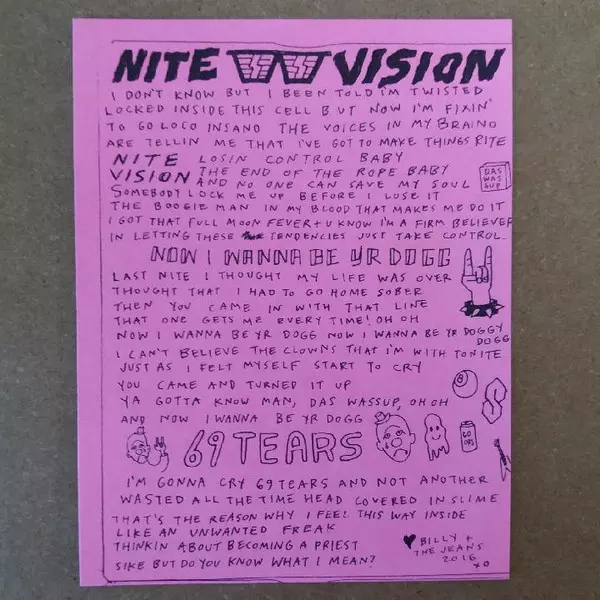 NITE VISION
I DON'T KNOW BUT I BEEN TOLD I'M TWISTED
LOCKED INSIDE THIS CELL BUT NOW I'M FIXIN'
TO GO LOCO INSANO THE VOICES IN MY BRAINO
ARE TELLIN ME THAT I'VE GOT TO MAKE THINGS RITE
NITE VISION
LOSIN CONTROL BABY
THE END OF THE ROPE BABY
AND NO ONE CAN SAVE MY SOUL
DAS WAS SUP
SOMEBODY LOCK ME UP BEFORE I LUSE IT
THE BOOGIE MAN IN MY BLOOD THAT MAKES ME DO IT
I GOT THAT FULL MOON FEVER + U KNOW I'M A FIRM BELIEVER
IN LETTING THESE TENDENCIES JUST TAKE CONTROL
NOW I WANNA BE YR DOGG
LAST NITE I THOUGHT MY LIFE WAS OVER
THOUGHT THAT I HAD TO GO HOME SOBER
THEN YOU CAME IN WITH THAT LINE
THAT ONE GETS ME EVERY TIME! OH OH
NOW I WANNA BE YR DOGG NOW I WANNA BE YR DOGGY
DOGG
I CAN'T BELIEVE THE CLOWNS THAT I'M WITH TONITE
JUST AS I FELT MYSELF START TO CRY
YOU CAME AND TURNED IT UP
YA GOTTA KNOW MAN, DAS WASSUP, OH OH
AND NOW I WANNA BE YR DOGG
8
S
69 TEARS
I'M GONNA CRY 69 TEARS AND NOT ANOTHER
WASTED ALL THE TIME HEAD COVERED IN SLIME
THAT'S THE REASON WHY I FEEL THIS WAY INSIDE
LIKE AN UNWANTED FREAK
THINKIN ABOUT BECOMING A PRIEST
SIKE BUT DO YOU KNOW WHAT I MEAN?
BILLY +
THE JEANS
2016
XO